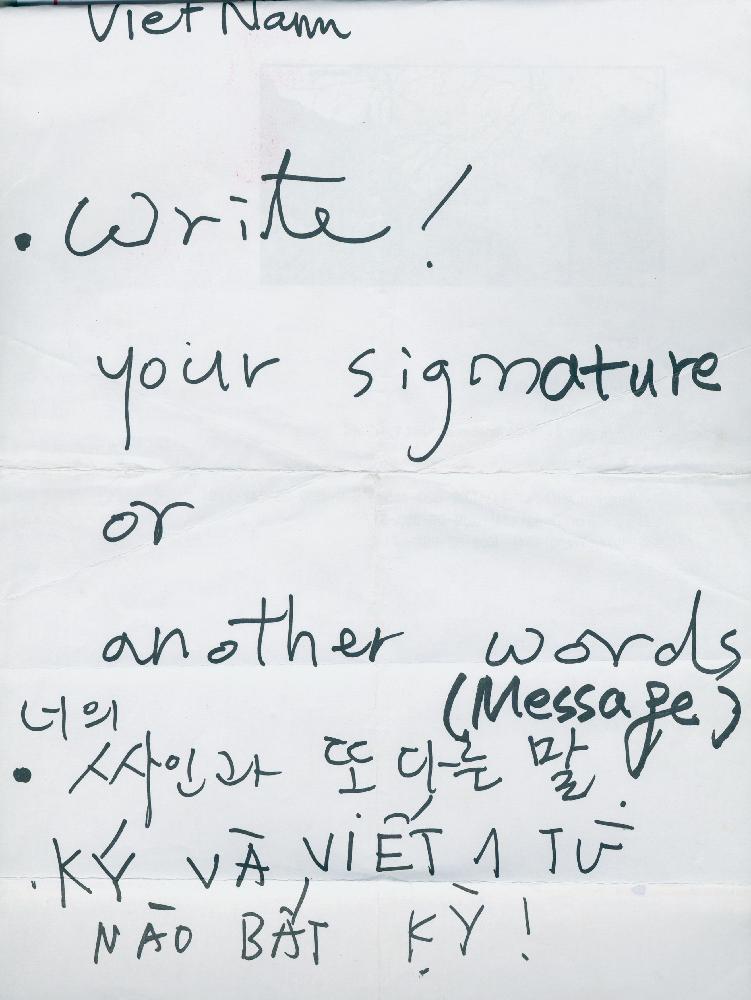 Viet Nam
• Write!
your signature
or
another words
(Message)
너의
• 싸인과 또 다른 말.
. KÝ VÀ VIẾT 1 TỪ
NÀO BẤT KỲ!